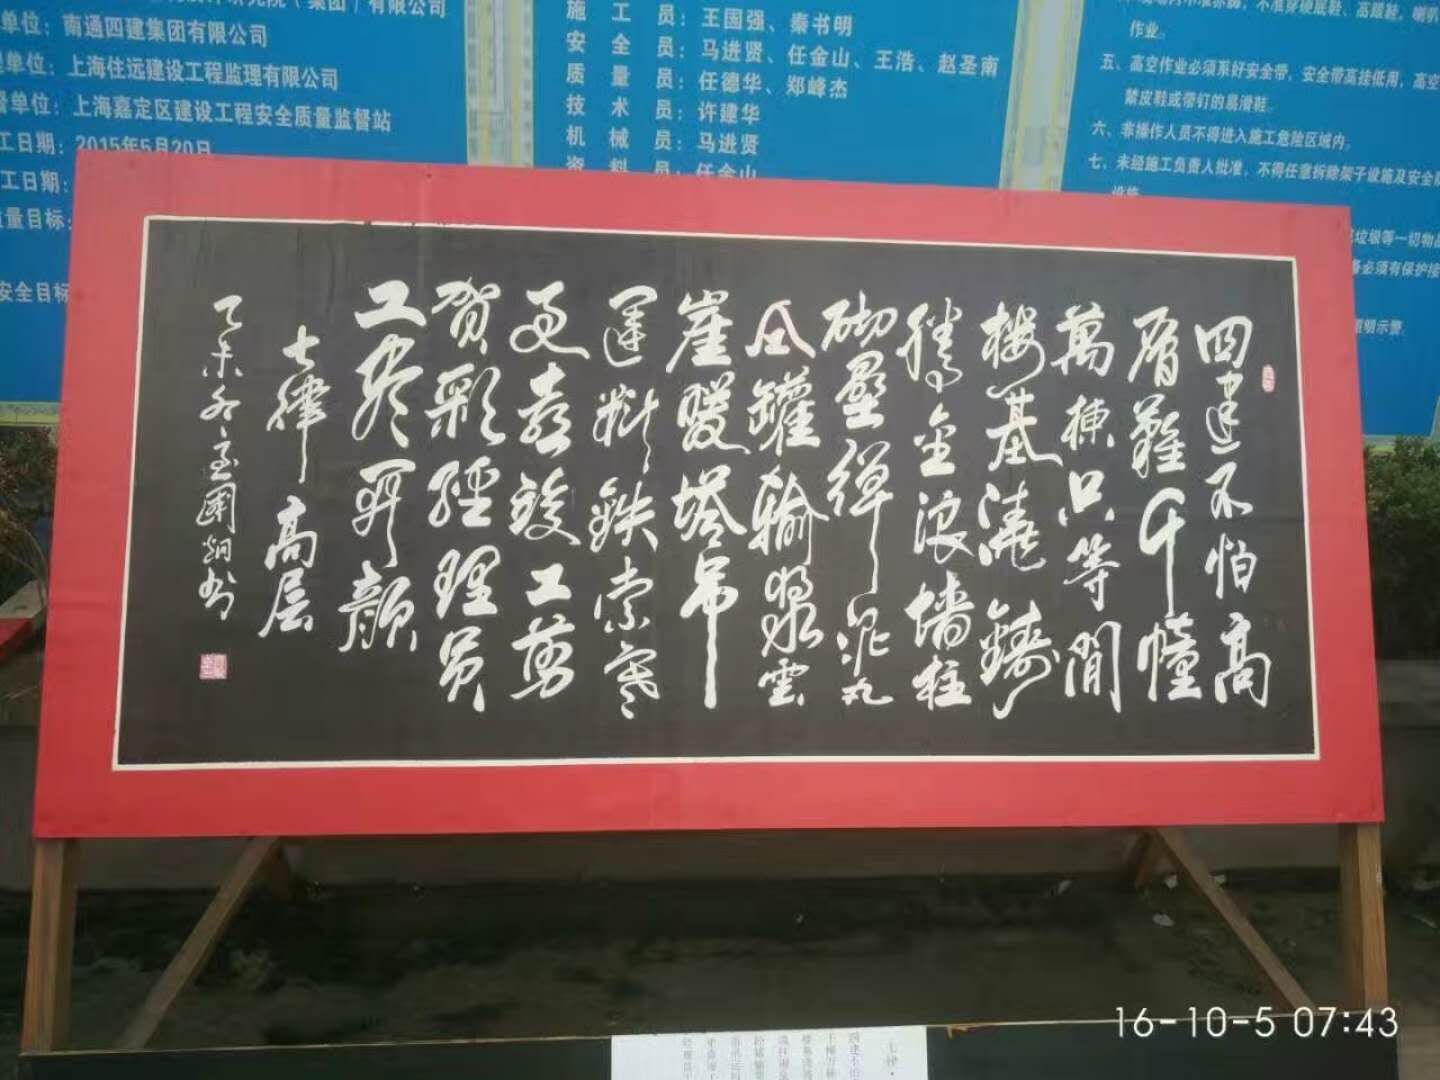 研究院(集团)有限公司
单位：南通四建集团有限公司
单位：上海住远建设工程监理有限公司
单位：上海嘉定区建设工程安全质量监督站
工日期：2015年5月20日
工日期：
质量目标：
安全目标
施工员：王国强、秦书明
安全员：马进贤、任金山、王浩、赵圣南
质量员：任德华、郑峰杰
技术员：许建华
机械员：马进贤
资料员：任金山
作业。
五、高空作业必须系好安全带，安全带高挂低用，高空
六、非操作人员不得进入施工危险区域内。
七、未经施工负责人批准，不得任意拆除架子设施及安全
设施
垃圾等一切物品
必须有保护接
明示警
四建不怕高
層難千幢
萬棟只等閒
楼基澆鑄
腾金浪墙柱
砌壘彈泥丸
风罐输浆雲
崖暖塔吊
運料鉄索寒
更喜竣工剪
贺彩經理员
工尽开颜
七律高层
乙未冬
16-10-5 07:43